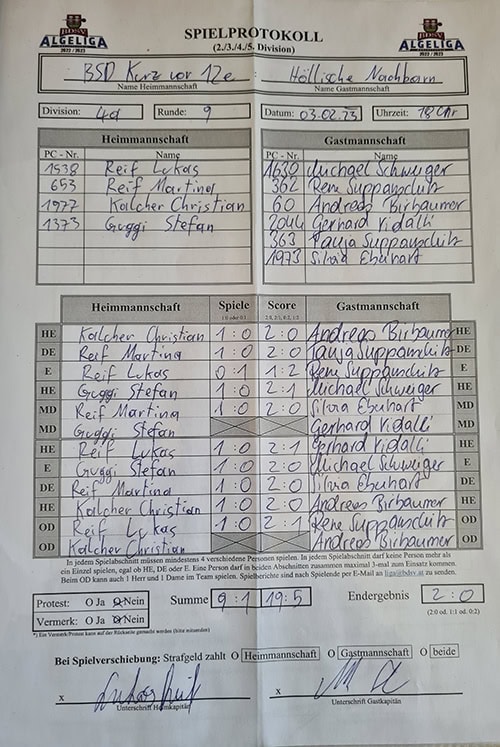 BDSV ALGELIGA 2022/2023
SPIELPROTOKOLL
(2./3./4./5. Division)
BDSV ALGELIGA 2022/2023
BSD Kurz vor 12e Höllische Nachbarn
Name Heimmannschaft Name Gastmannschaft
Division: 4d Runde: 9 Datum: 03.02.23 Uhrzeit: 18 Uhr
Heimmannschaft Gastmannschaft
PC - Nr. Name PC - Nr. Name
1538 Reif Lukas 1630 Michael Schweiger
653 Reif Martina 362 Rene Suppanschitz
1977 Kalcher Christian 60 Andreas Birbaumer
1373 Guggi Stefan 2044 Gerhard Vidalli
363 Tanja Suppanschitz
1973 Silvia Eberhart
Heimmannschaft Spiele Score Gastmannschaft
1:0 oder 0:1 2:0, 2:1, 0:2, 1:2
HE Kalcher Christian 1 : 0 2 : 0 Andreas Birbaumer HE
DE Reif Martina 1 : 0 2 : 0 Tanja Suppanschitz DE
E Reif Lukas 0 : 1 1 : 2 Rene Suppanschitz E
HE Guggi Stefan 1 : 0 2 : 1 Michael Schweiger HE
MD Reif Martina 1 : 0 2 : 0 Silvia Eberhart MD
MD Guggi Stefan Gerhard Vidalli MD
HE Reif Lukas 1 : 0 2 : 1 Gerhard Vidalli HE
E Guggi Stefan 1 : 0 2 : 0 Michael Schweiger E
DE Reif Martina 1 : 0 2 : 0 Silvia Eberhart DE
HE Kalcher Christian 1 : 0 2 : 0 Andreas Birbaumer HE
OD Reif Lukas 1 : 0 2 : 1 Rene Suppanschitz OD
OD Kalcher Christian Andreas Birbaumer OD
In jedem Spielabschnitt müssen mindestens 4 verschiedene Personen spielen. In jedem Spielabschnitt darf keine Person mehr als
ein Einzel spielen, egal ob HE, DE oder E. Eine Person darf in beiden Abschnitten zusammen maximal 3-mal zum Einsatz kommen.
Beim OD kann auch 1 Herr und 1 Dame im Team spielen. Spielberichte sind nach Spielende per E-Mail an liga@bdsv.at zu senden.
Protest: O Ja O Nein Summe 9 : 1 19 : 5 Endergebnis 2 : 0
Vermerk: O Ja O Nein (2:0 od. 1:1 od. 0:2)
*) Ein Vermerk/Protest kann auf der Rückseite gemacht werden (bitte mitsenden)
Bei Spielverschiebung: Strafgeld zahlt O Heimmannschaft O Gastmannschaft O beide
x x
Unterschrift Heimkapitän Unterschrift Gastkapitän